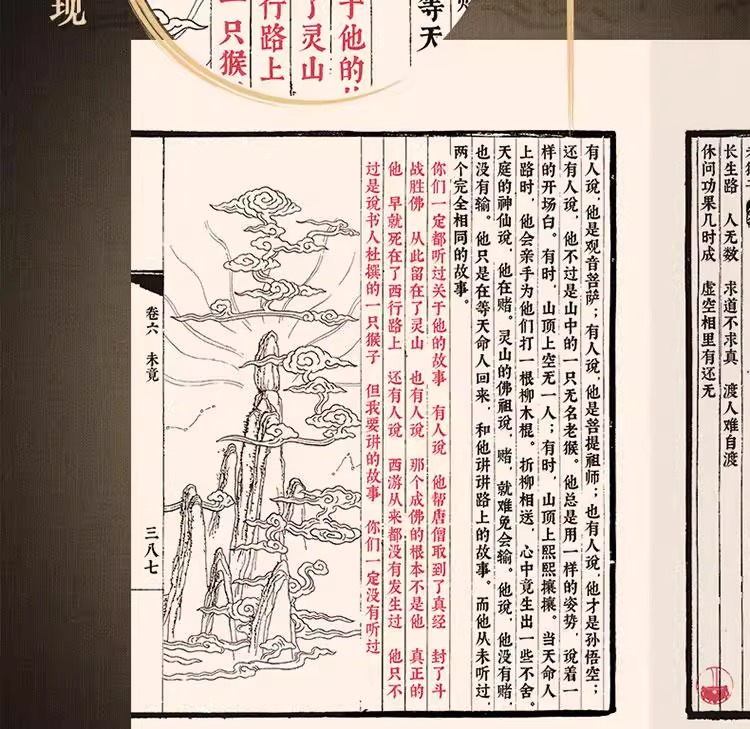 现
等天
于他的
了灵山
行路上
一只猴
长生路 人无数 求道不求真 渡人难自渡
休问功果几时成 虚空相里有还无
有人说,他是观音菩萨;有人说,他是菩提祖师;也有人说,他才是孙悟空;
还有人说,他不过是山中的一只无名老猴。他总是用一样的姿势,说着一
样的开场白。有时,山顶上空无一人;有时,山顶上熙熙攘攘。当天命人
上路时,他会亲手为他们打一根柳木棍。折柳相送,心中竟生出一些不舍。
天庭的神仙说,他在赌。灵山的佛祖说,赌,就难免会输。他说,他没有赌,
也没有输。他只是在等天命人回来,和他讲讲路上的故事。而他从未听过,
两个完全相同的故事。
你们一定都听过关于他的故事 有人说 他帮唐僧取到了真经 封了斗
战胜佛 从此留在了灵山 也有人说 那个成佛的根本不是他 真正的
他 早就死在了西行路上 还有人说 西游从来都没有发生过 他只不
过是说书人杜撰的一只猴子 但我要讲的故事 你们一定没有听过
卷六 未竟
三八七